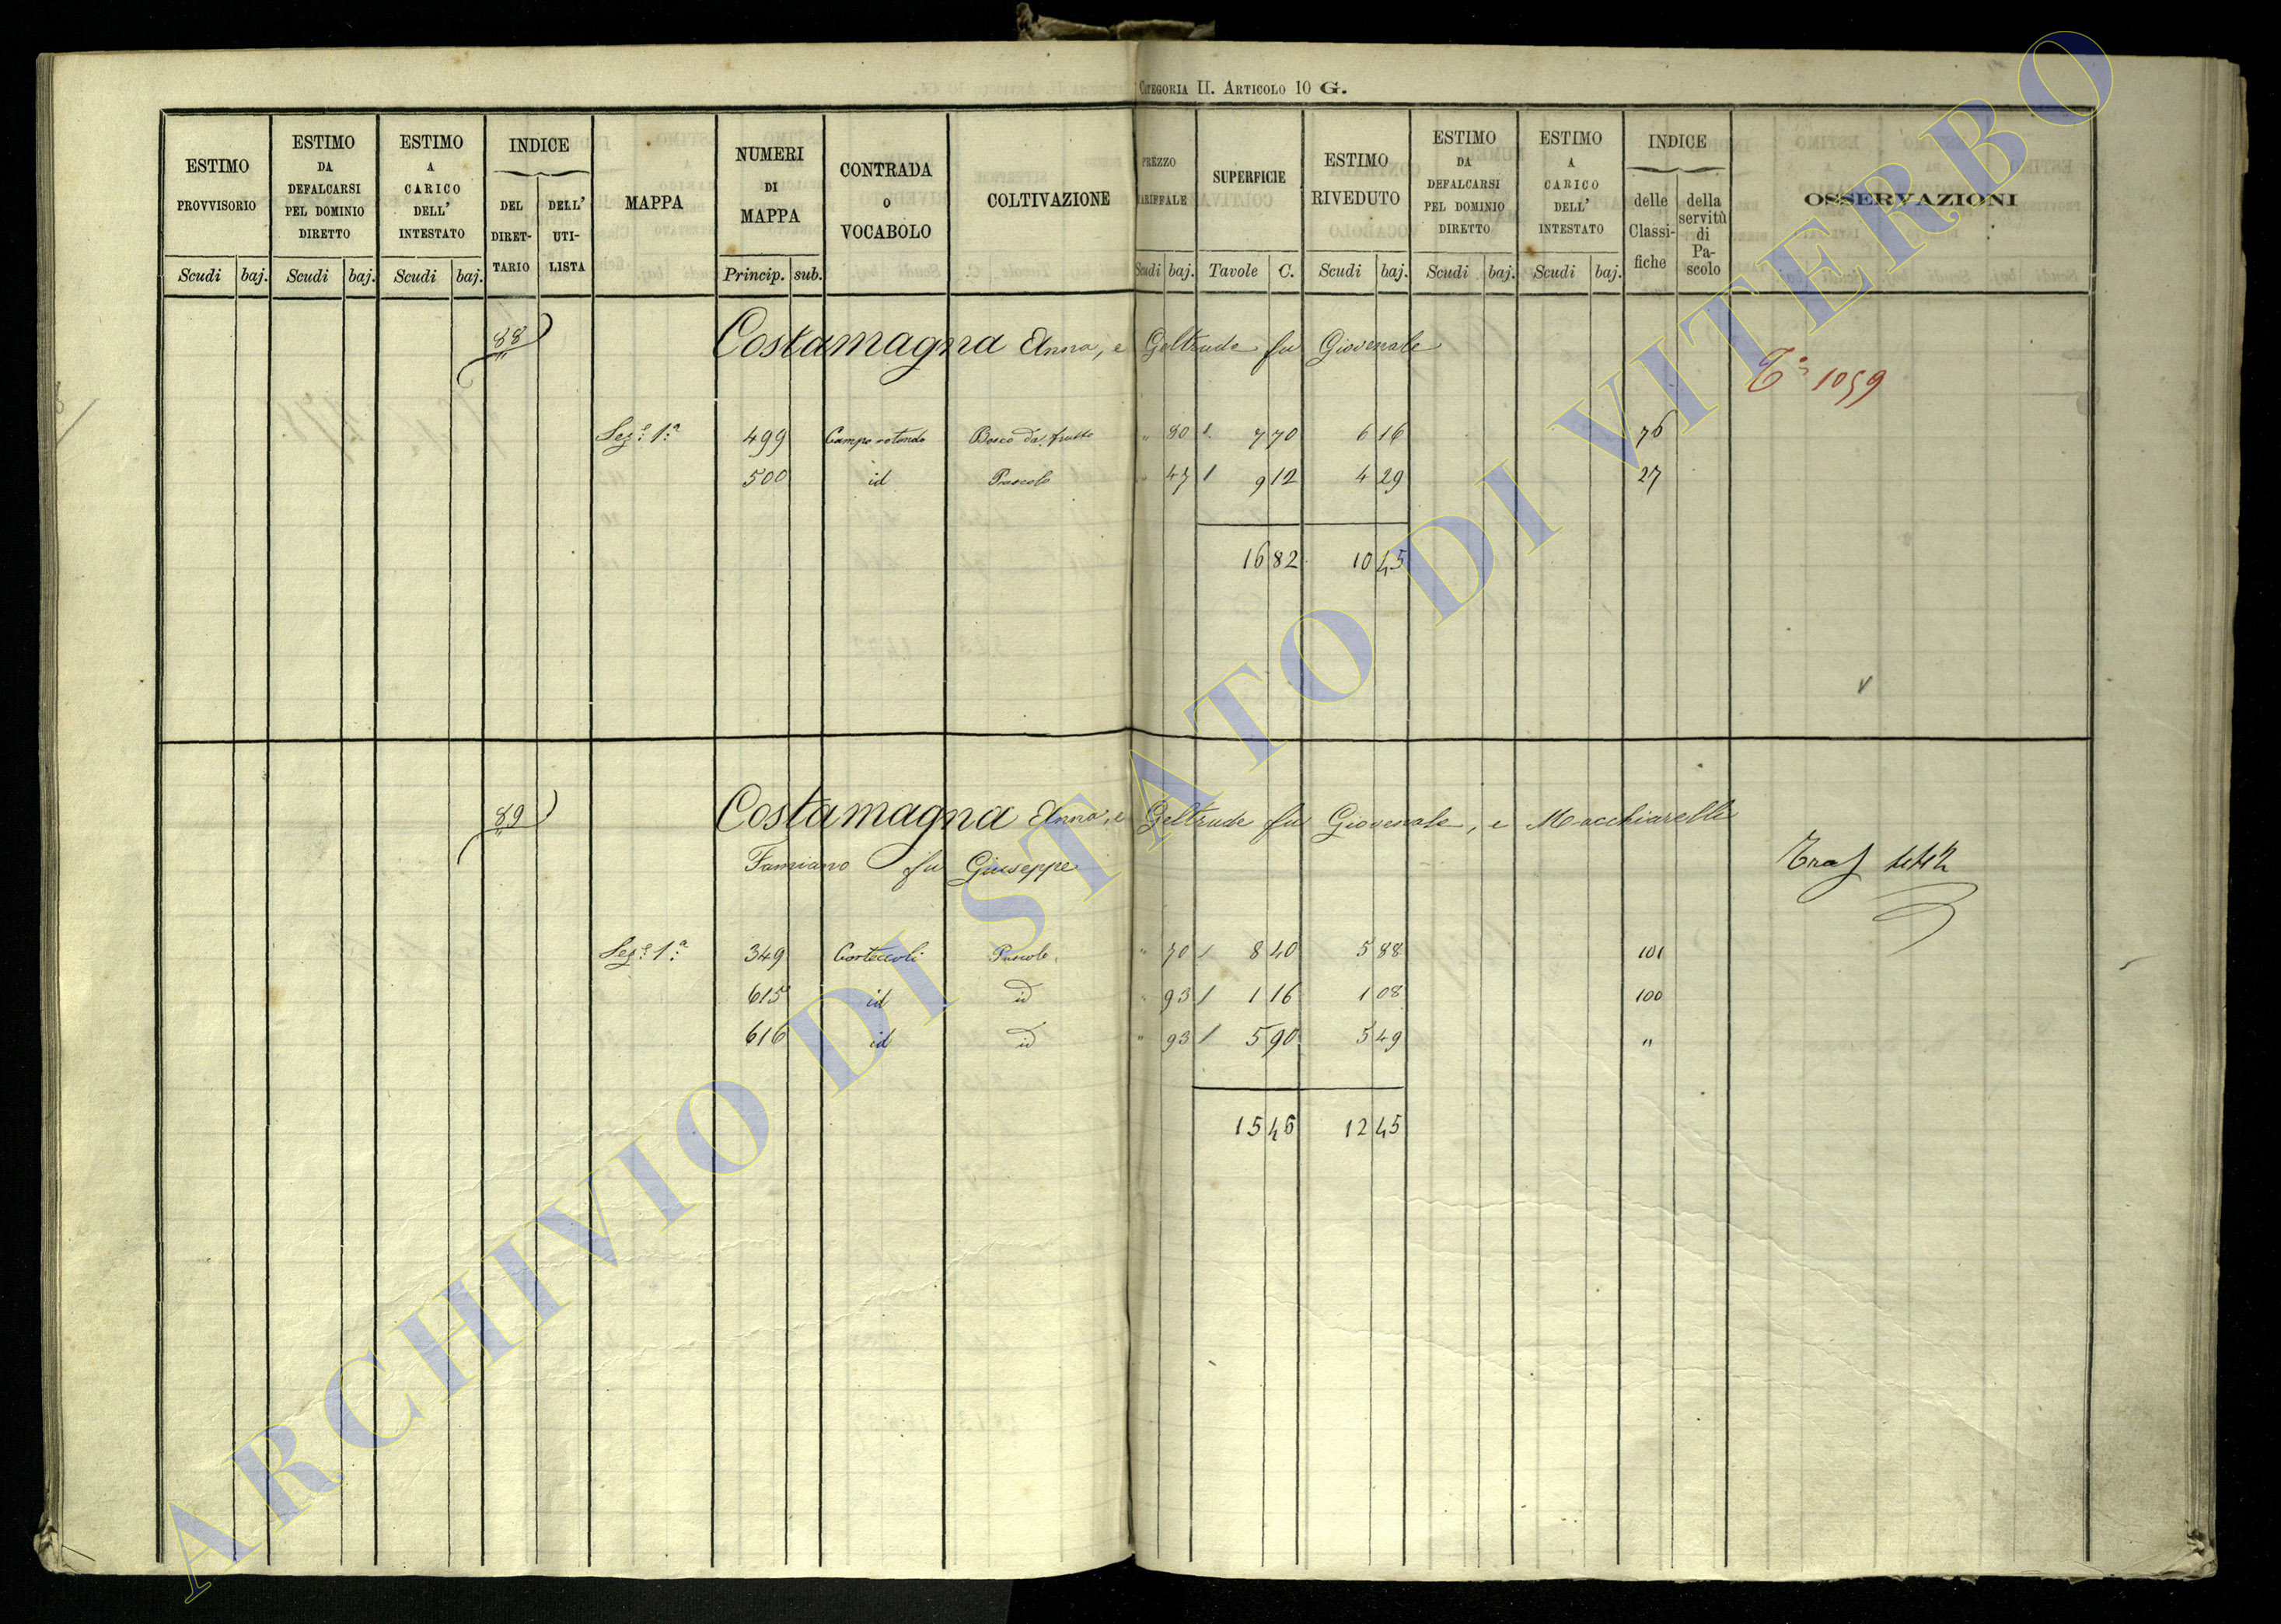 Categoria II. Articolo 10 G.
ESTIMO PROVVISORIO Scudi baj.
ESTIMO DA DEFALCARSI PEL DOMINIO DIRETTO Scudi baj.
ESTIMO A CARICO DELL' INTESTATO Scudi baj.
INDICE DEL DIRET-TARIO DELL' UTI-LISTA
MAPPA
NUMERI DI MAPPA Princip. sub.
CONTRADA O VOCABOLO
COLTIVAZIONE
PREZZO TARIFFALE Scudi baj.
SUPERFICIE Tavole C.
ESTIMO RIVEDUTO Scudi baj.
ESTIMO DA DEFALCARSI PEL DOMINIO DIRETTO Scudi baj.
ESTIMO A CARICO DELL' INTESTATO Scudi baj.
INDICE delle Classi-fiche della servitù di Pa-scolo
OSSERVAZIONI
88 Costamagna Anna, e Geltrude fu Giovenale
1059
Sez.e 1.a 499 Campo rotondo Bosco da frutto " 80 7 70 6 16 76
500 id Pascolo " 47 9 12 4 29 27
16 82 10 45
89 Costamagna Anna, e Geltrude fu Giovenale, e Macchiarelli
Famiano fu Giuseppe
Sez.e 1.a 349 Corteccoli Pascolo " 70 8 40 5 88 101
615 id id " 93 1 16 1 08 100
616 id id " 93 5 90 5 49 "
15 46 12 45
ARCHIVIO DI STATO DI VITERBO